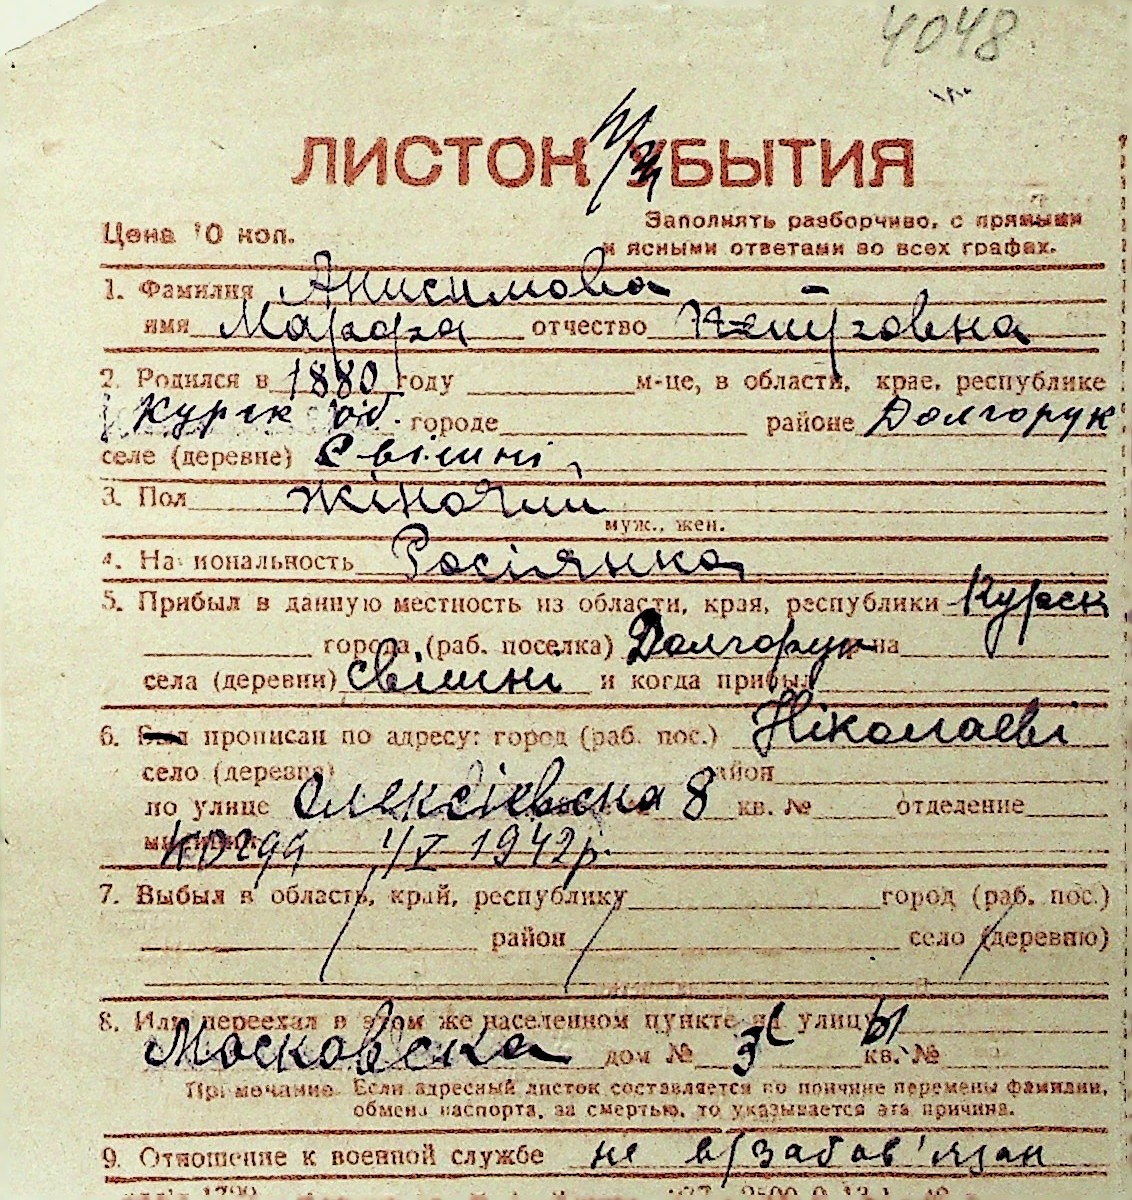 4048
ЛИСТОК УБЫТИЯ
Цена 10 коп.
Заполнять разборчиво, с прямыми
и ясными ответами во всех графах.
1. Фамилия Анисимова
имя Марфа отчество Петровна
2. Родился в 1880 году м-це, в области, крае, республике
Курск об. городе районе Долгорук
селе (деревне) Свішні
3. Пол жіночий
муж., жен.
4. Национальность Росіянка
5. Прибыл в данную местность из области, края, республики Курск
города (раб. поселка) Долгорук на
села (деревни) Свішні и когда прибыл
6. Был прописан по адресу: город (раб. пос.) Ніколаєві
село (деревня) район
по улице Олексіевська 8 кв. № отделение
милиции 1942р.
7. Выбыл в область, край, республику город (раб. пос.)
район село (деревню)
8. Или переехал в этом же населенном пункте на улицу
Московска дом № кв. №
Примечание. Если адресный листок составляется по причине перемены фамилии,
обмена паспорта, за смертью, то указывается эта причина.
9. Отношение к военной службе не